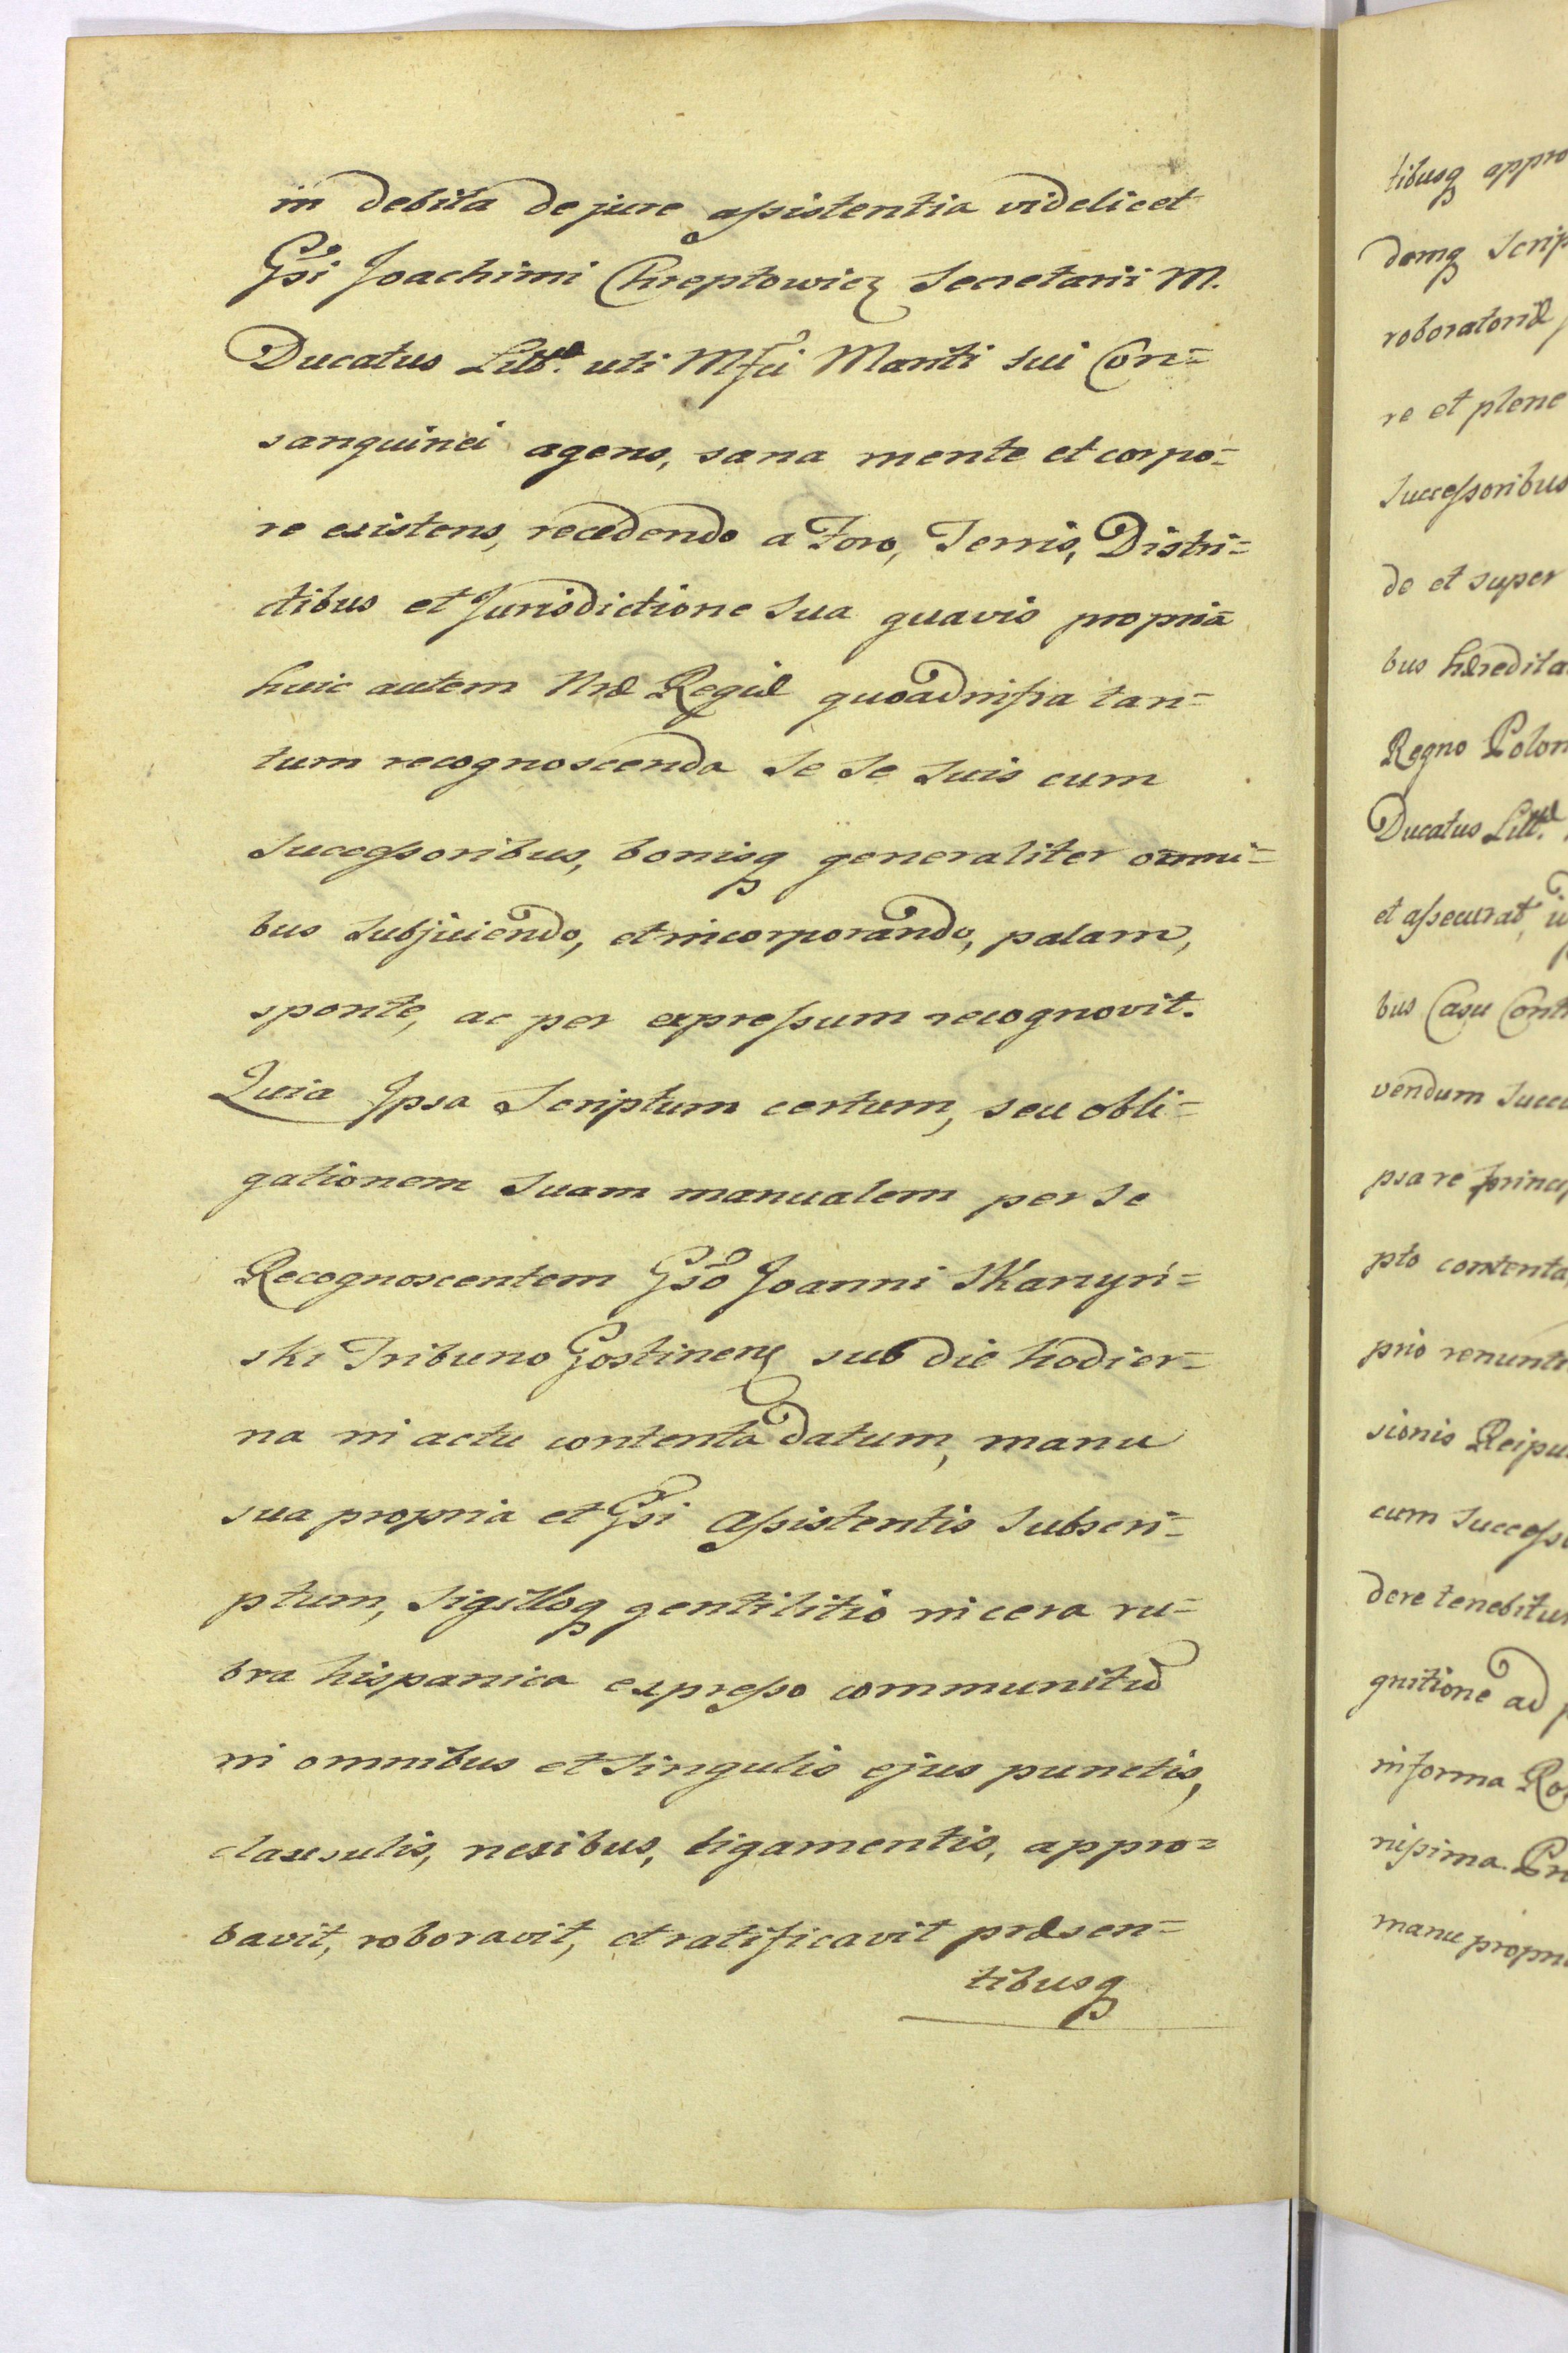 in debita de jure assistentia videlicet
Gsi Joachimi Chreptowicz Secretarii M.
Ducatus Litt. uti Mfci Mariti sui Con=
sanguinei agens, sana mente et corpo=
re existens, recedendo a Foro, Terris, Distri=
ctibus et Jurisdictione sua quavis propria
huic autem Nræ Regiæ quoad infra tan=
tum recognoscenda se se suis cum
Successoribus, bonisq generaliter omni=
bus subjiciendo, et incorporando, palam,
sponte, ac per expressum recognovit.
Quia Ipsa Scriptum certum, seu obli=
gationem suam manualem per se
Recognoscentem Gso Joanni Skarzyń=
ski Tribuno Gostinen sub die hodier=
na in actu contenta datum, manu
sua propria et Gsi Assistentis subscri=
ptum, sigilloq gentilitio in cera ru=
bra hispanica expresso communitũ
in omnibus et singulis ejus punctis,
clausulis, nexibus, ligamentis, appro=
bavit, roboravit, et ratificavit præsen=
tibusq
tibusq appro
demq Scrip
roboratoriæ
re et plene
Successoribus
de et super
bus hæredita
Regno Polon
Ducatus Litt.
et assecurat,
bus Casu Cont
vendum succ
psa re princip
pto contenta
prio renunti
sionis Reipu
cum Successo
dere tenebitur
gnitione ad
in forma Ro
nissima. Pn
manu propri